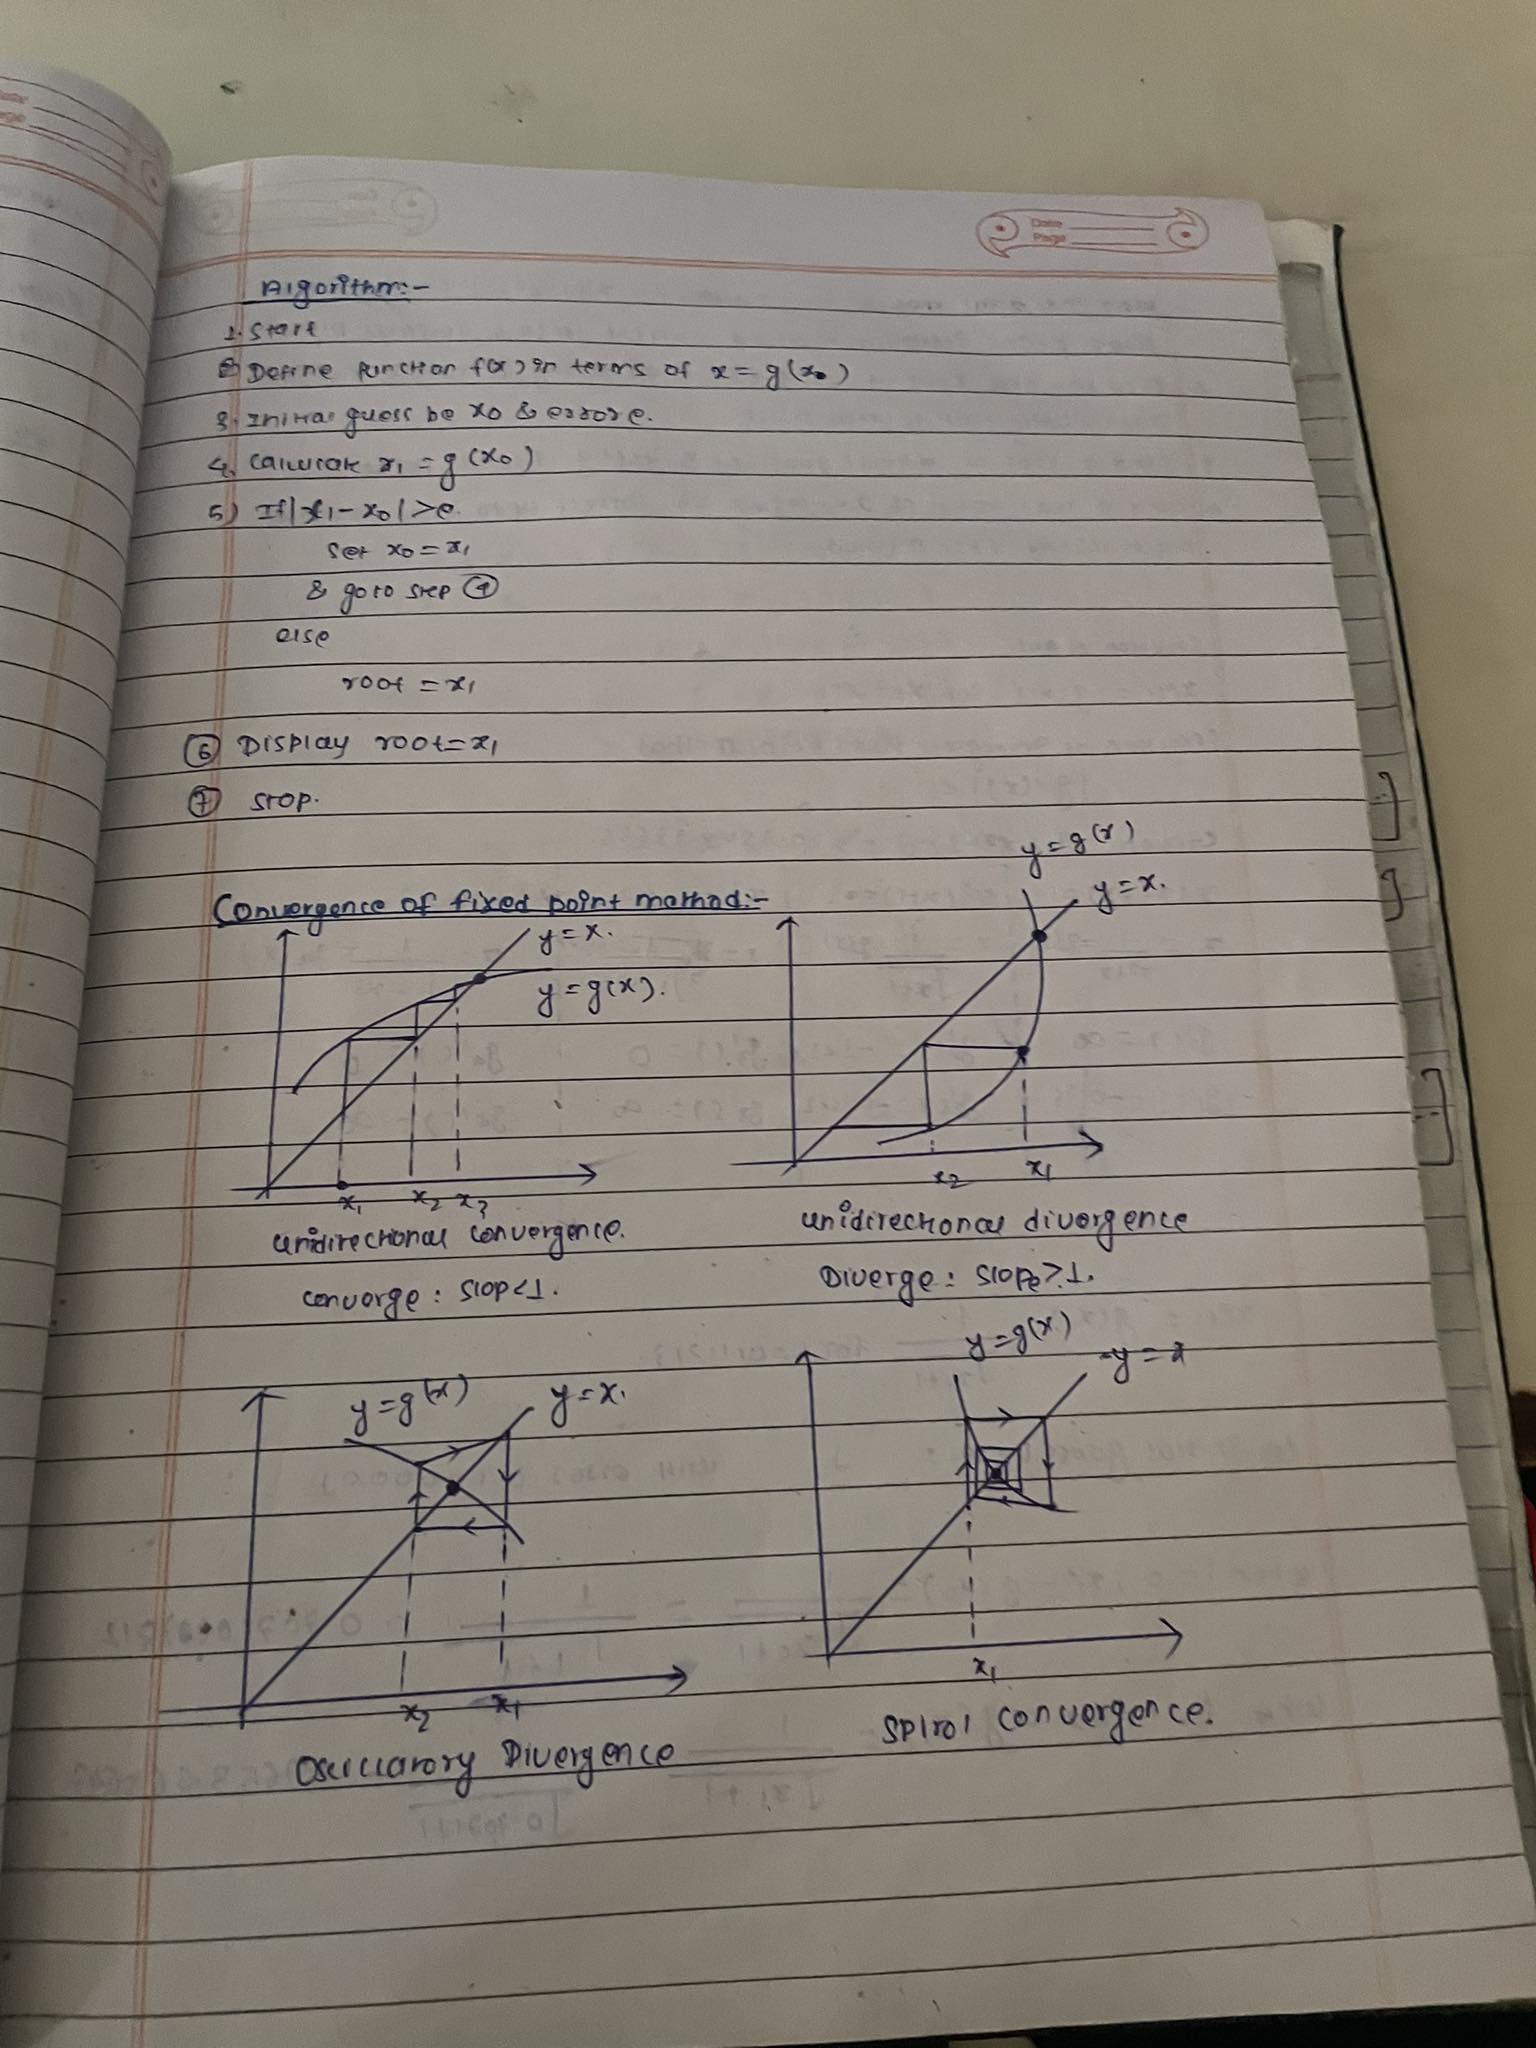 Date
Page
Algorithm:-
1. Start
2) Define function f(x) in terms of x = g(x0)
3. Initial guess be x0 & error e.
4. Calculate x1 = g(x0)
5) If |x1 - x0| > e.
set x0 = x1
& goto step ④
else
root = x1
⑥ Display root = x1
⑦ Stop.
Convergence of fixed point method:-
y = x.
y = g(x).
x1 x2 x3
unidirectional convergence.
converge: Slop < 1.
y = g(x)
y = x.
x2 x1
unidirectional divergence
Diverge: Slope > 1.
y = g(x)
y = x.
x2 x1
Oscillatory Divergence
y = g(x)
y = x
x1
Spiral convergence.